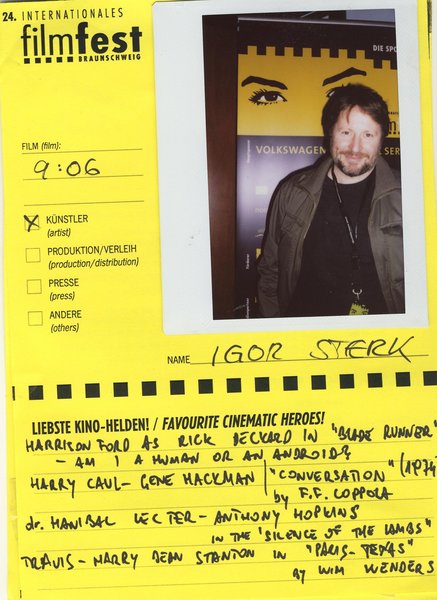 24. INTERNATIONALES
filmfest
BRAUNSCHWEIG
DIE SPO
VOLKSWAGEN
SER
FILM (film):
9:06
KÜNSTLER
(artist)
PRODUKTION/VERLEIH
(production/distribution)
PRESSE
(press)
ANDERE
(others)
NAME IGOR STERK
LIEBSTE KINO-HELDEN! / FAVOURITE CINEMATIC HEROES!
HARRISON FORD AS RICK DECKARD IN "BLADE RUNNER"
- AM I A HUMAN OR AN ANDROID?
HARRY CAUL - GENE HACKMAN | "CONVERSATION" (1974)
by F.F. COPPOLA
dr. HANIBAL LECTER - ANTHONY HOPKINS
IN THE "SILENCE OF THE LAMBS"
TRAVIS - HARRY DEAN STANTON IN "PARIS-TEXAS"
by WIM WENDERS